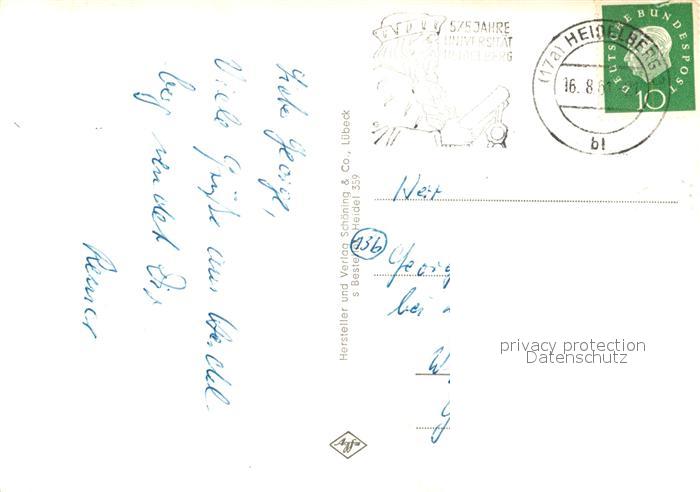 Liebe George,
Viele Grüße aus Heidel-
berg sendet Dir
Reiner
Hersteller und Verlag Schöning & Co., Lübeck
s Beste Heidel 359
Agfa
575 JAHRE
UNIVERSITÄT
HEIDELBERG
(17a) HEIDELBERG
16. 8. 61
bl
DEUTSCHE BUNDESPOST
10
Herr
136
Georg
bei
W
G
privacy protection
Datenschutz